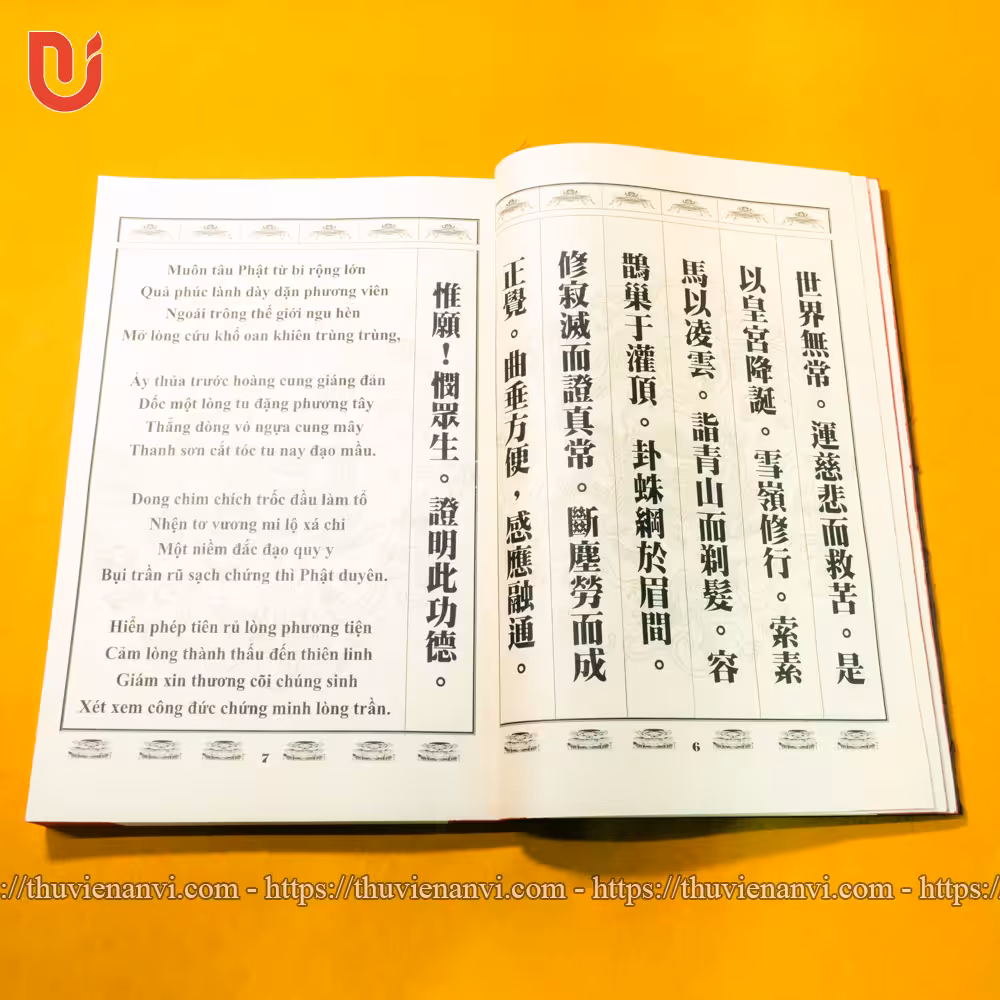 世界無常。運慈悲而救苦。是
以皇宮降誕。雪嶺修行。索素
馬以凌雲。詣青山而剃髮。容
鵲巢于灌頂。卦蛛綱於眉間。
修寂滅而證真常。斷塵勞而成
正覺。曲垂方便，感應融通。
6
惟願！憫眾生。證明此功德。
Muôn tâu Phật từ bi rộng lớn
Quả phúc lành dày dặn phương viên
Ngoái trông thế giới ngu hèn
Mở lòng cứu khổ oan khiên trùng trùng,
Ấy thủa trước hoàng cung giáng đản
Dốc một lòng tu đặng phương tây
Thẳng dòng vó ngựa cung mây
Thanh sơn cắt tóc tu nay đạo mầu.
Dong chim chích trốc đầu làm tổ
Nhện tơ vương mi lộ xá chi
Một niềm đắc đạo quy y
Bụi trần rũ sạch chứng thì Phật duyên.
Hiển phép tiên rủ lòng phương tiện
Cảm lòng thành thấu đến thiên linh
Giám xin thương cõi chúng sinh
Xét xem công đức chứng minh lòng trần.
7
://thuvienanvi.com - https://thuvienanvi.com - https://thuvienanvi.com - https://